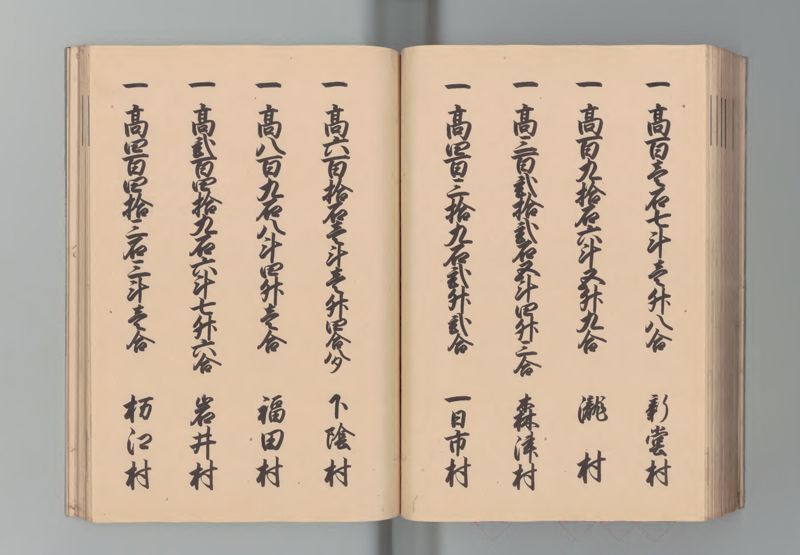 一 高百壱石七斗壱升八合 新堂村
一 高百九拾石六斗五升九合 瀧村
一 高三百弐拾弐石五斗四升三合 森津村
一 高四百三拾九石弐升弐合 一日市村
一 高六百拾石壱斗壱升四合八夕 下陰村
一 高八百九石八斗四升壱合 福田村
一 高弐百四拾九石六斗七升六合 岩井村
一 高四百四拾三石三斗壱合 栃江村